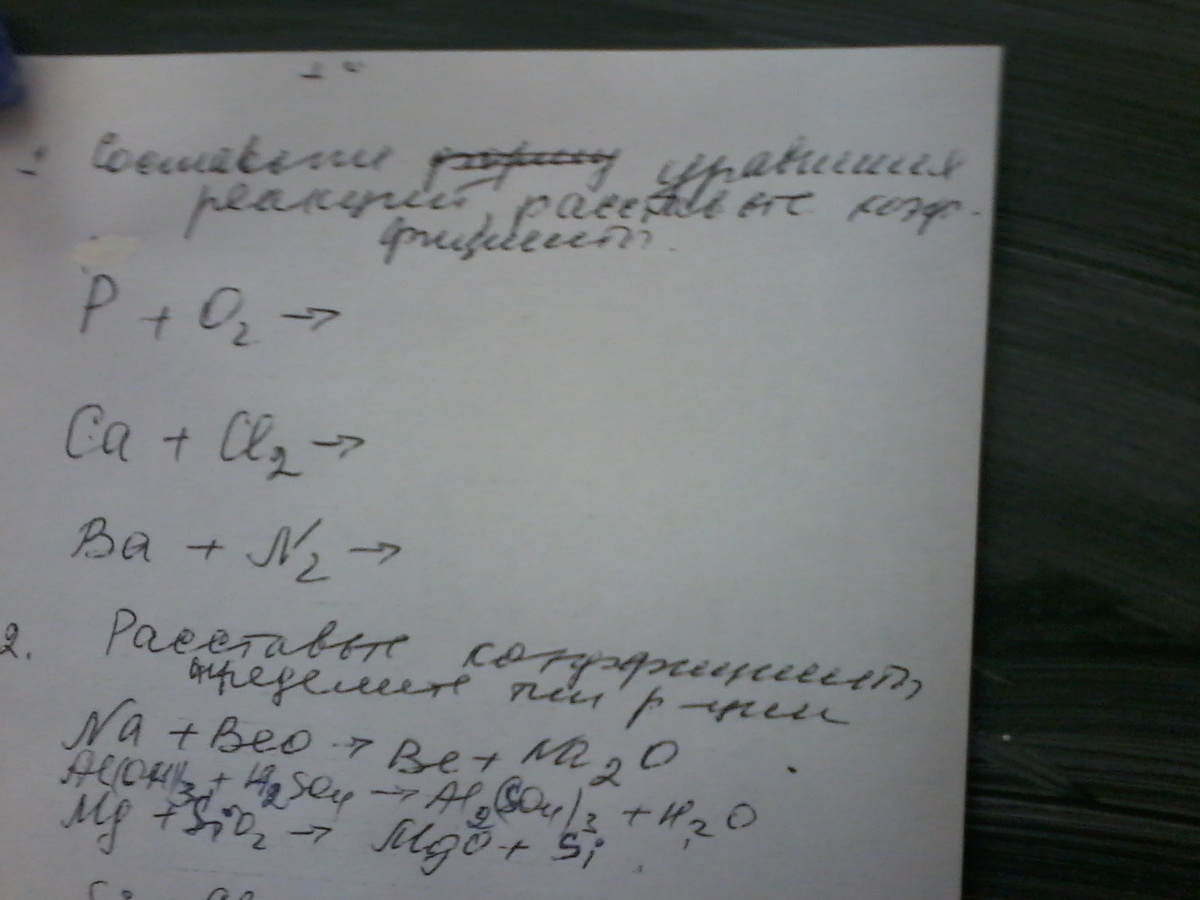 1 Составьте уравнения
реакций, расставьте коэф-
фициенты.
P + O₂ →
Ca + Cl₂ →
Ba + N₂ →
2. Расставьте коэффициенты,
определите тип р-ции
Na + BeO → Be + Na₂O
Al(OH)₃ + H₂SO₄ → Al₂(SO₄)₃ + H₂O
Mg + SiO₂ → MgO + Si